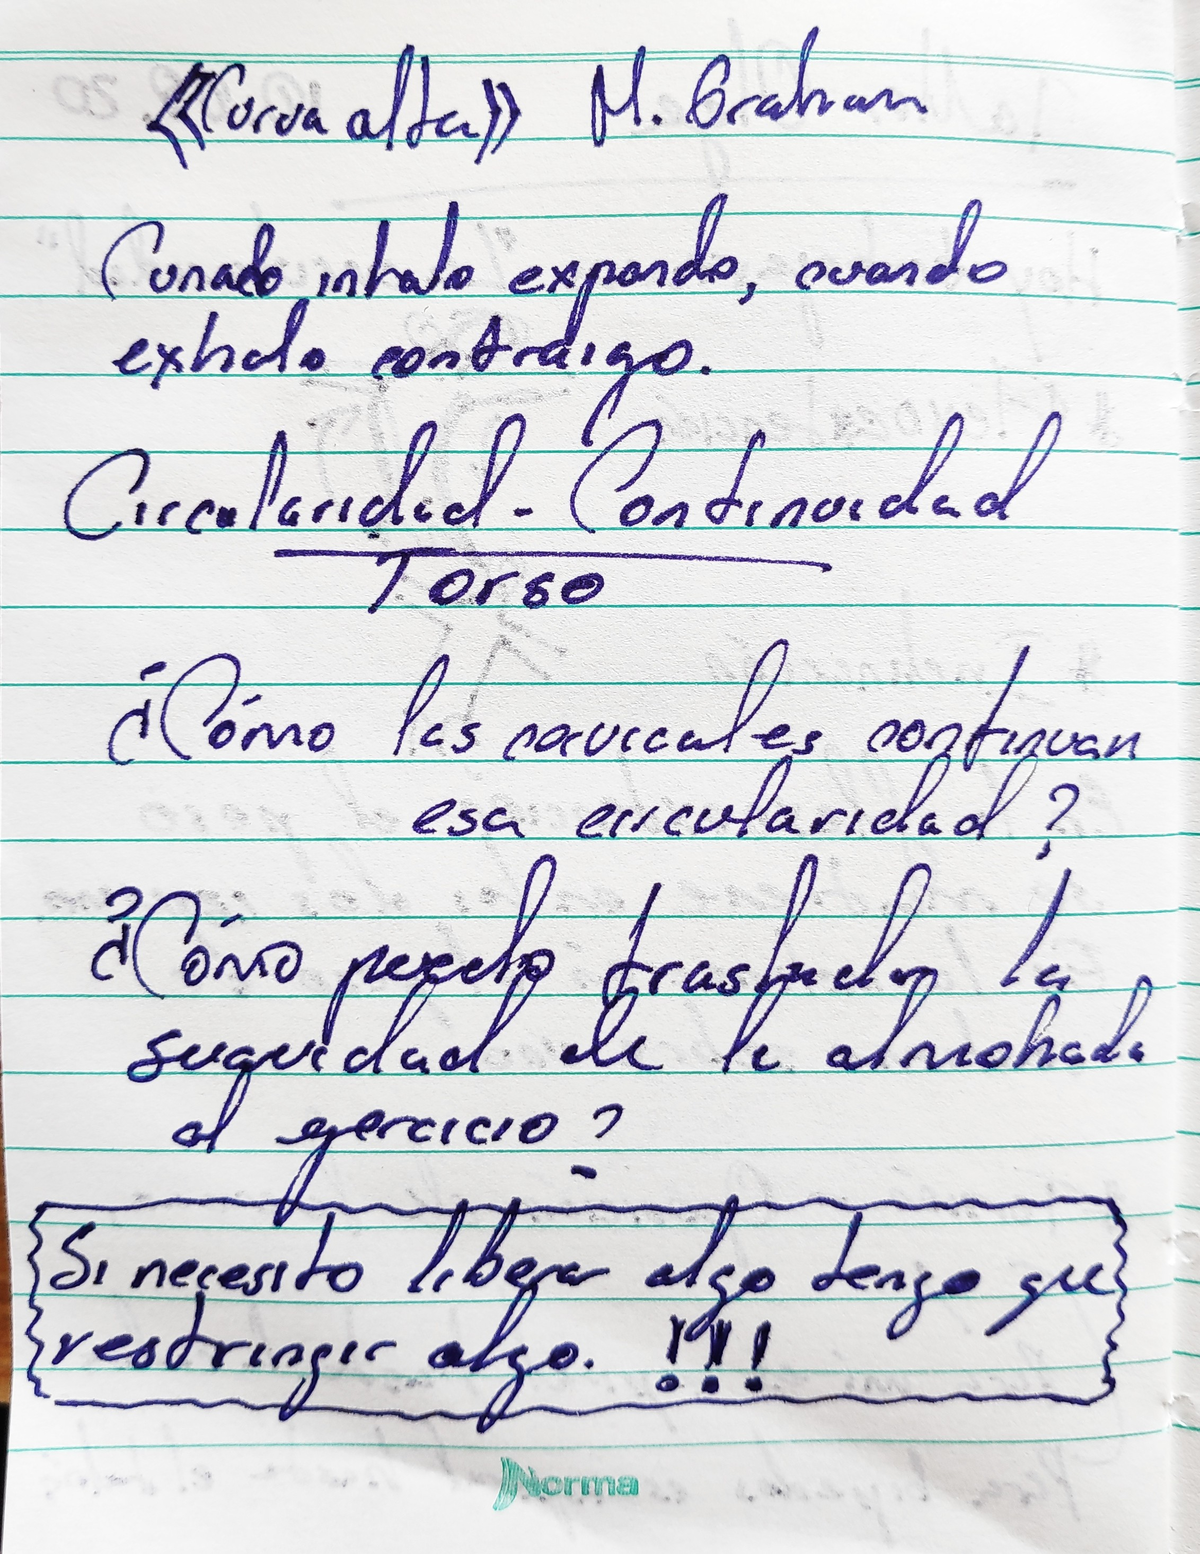 «Curva alta» M. Graham
Cunado inhalo expando, cuando
exhalo contraigo.
Circularidad - Continuidad
Torso
¿Cómo las cervicales continuan
esa circularidad?
¿Cómo puedo trasladar la
suavidad de la almohada
al ejercicio?
Si necesito liberar algo tengo que
restringir algo. !!!
Norma